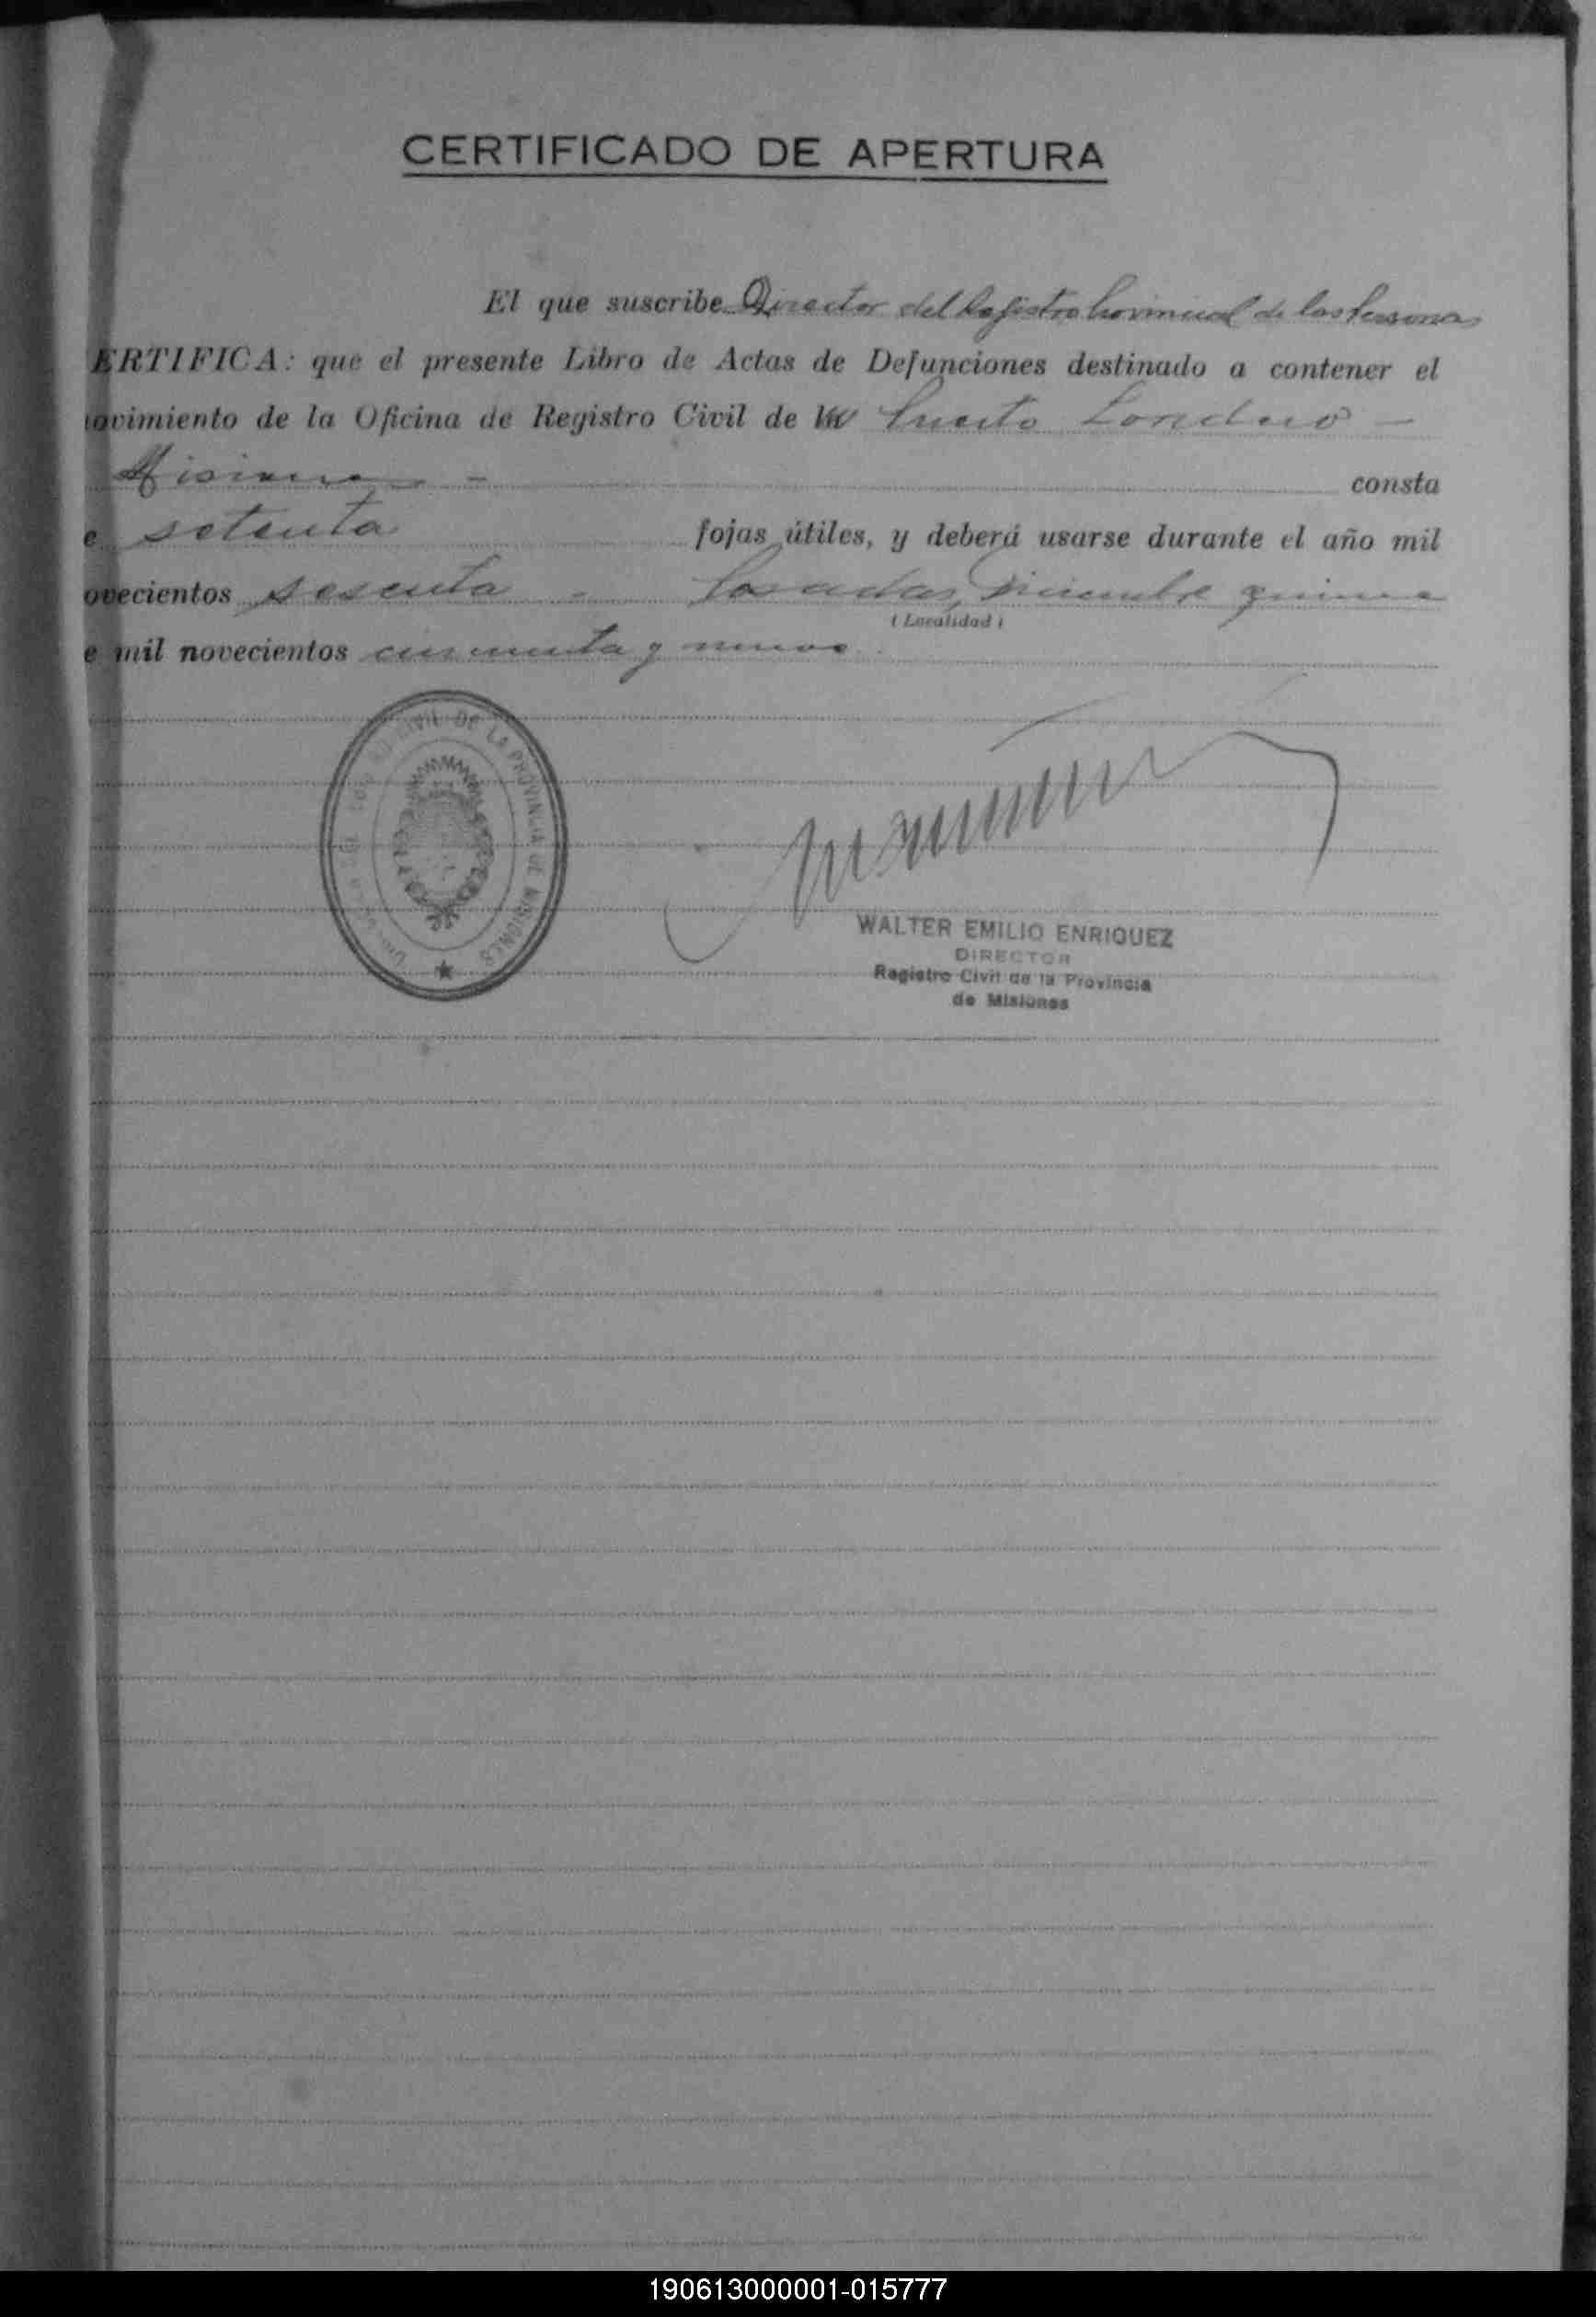 CERTIFICADO DE APERTURA
El que suscribe Director del Registro Provincial de las Personas
ERTIFICA: que el presente Libro de Actas de Defunciones destinado a contener el
ovimiento de la Oficina de Registro Civil de Puerto
Misiones - consta
e setenta fojas útiles, y deberá usarse durante el año mil
ovecientos sesenta - Posadas, Diciembre quince
(Localidad)
e mil novecientos cincuenta y nueve
CIVIL DE LA PROVINCIA DE MISIONES
WALTER EMILIO ENRIQUEZ
DIRECTOR
Registro Civil de la Provincia
de Misiones
190613000001-015777